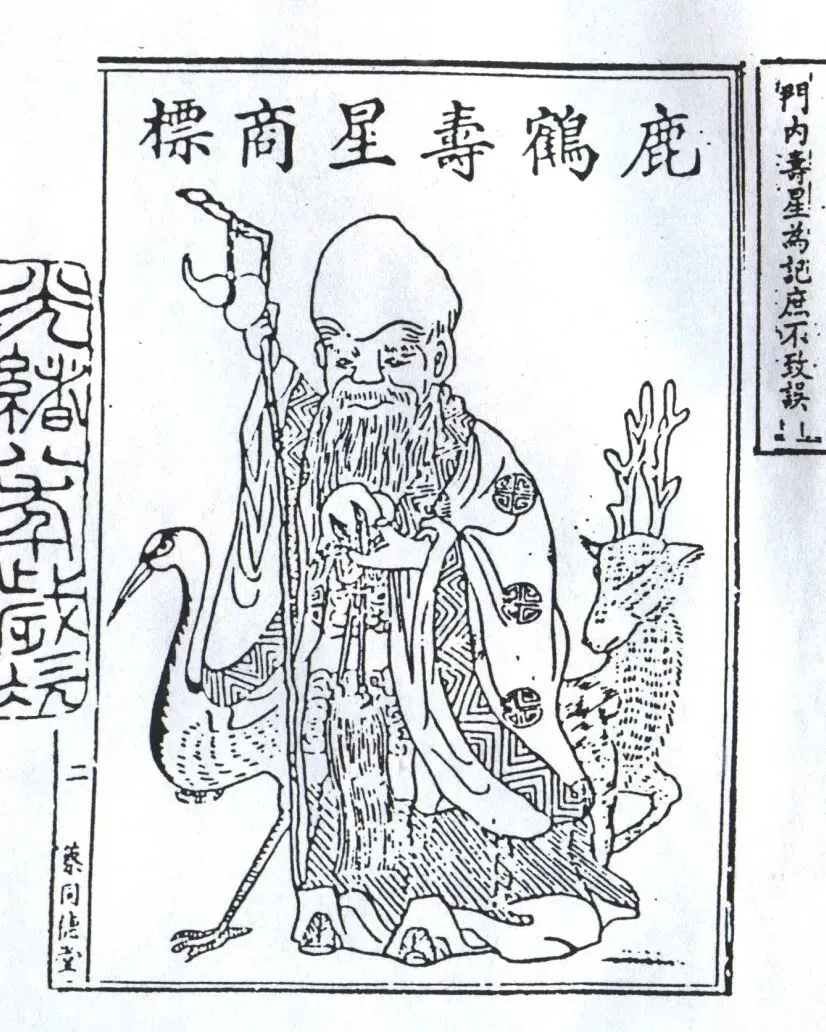 門內壽星為記庶不致誤
鹿鶴壽星商標
光緒八年歲
二
蔡同德堂